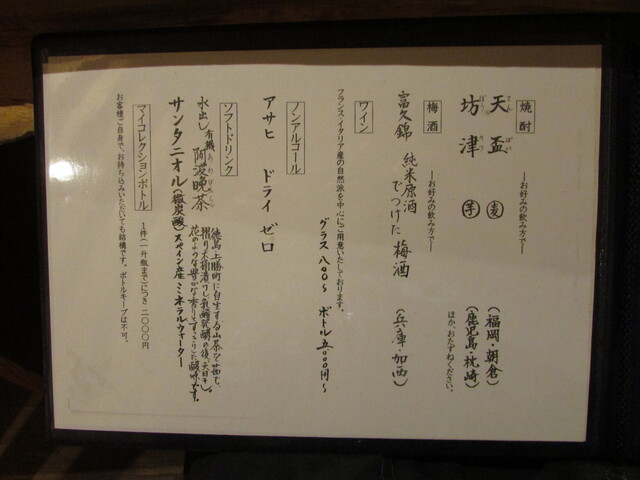 焼酎
―お好みの飲み方で―
天盃 麦 (福岡・朝倉)
てんぱい
坊津 芋 (鹿児島・枕崎)
ぼうのつ
ほか、おたずねください。
梅酒
―お好みの飲み方で―
富久錦 純米原酒でつけた梅酒 (兵庫加西)
ワイン
フランス・イタリア産の自然派を中心にご用意いたしております。
グラス 八〇〇～ ボトル 五〇〇〇円～
ノンアルコール
アサヒ ドライ ゼロ
ソフトドリンク
水出し有機阿波晩茶
あわばんちゃ
徳島 上勝町に自生する山茶を茹で、
摺り木桶漬けし乳酸発酵の後、天日干し。
花のような豊かな香りとすっきりした酸味です。
サンタニオル(微炭酸) スペイン産ミネラルウォーター
マイコレクションボトル 1件(一升瓶まで)につき 二〇〇〇円
お客様ご自身で、お持ち込みいただいても結構です。ボトルキープは不可。